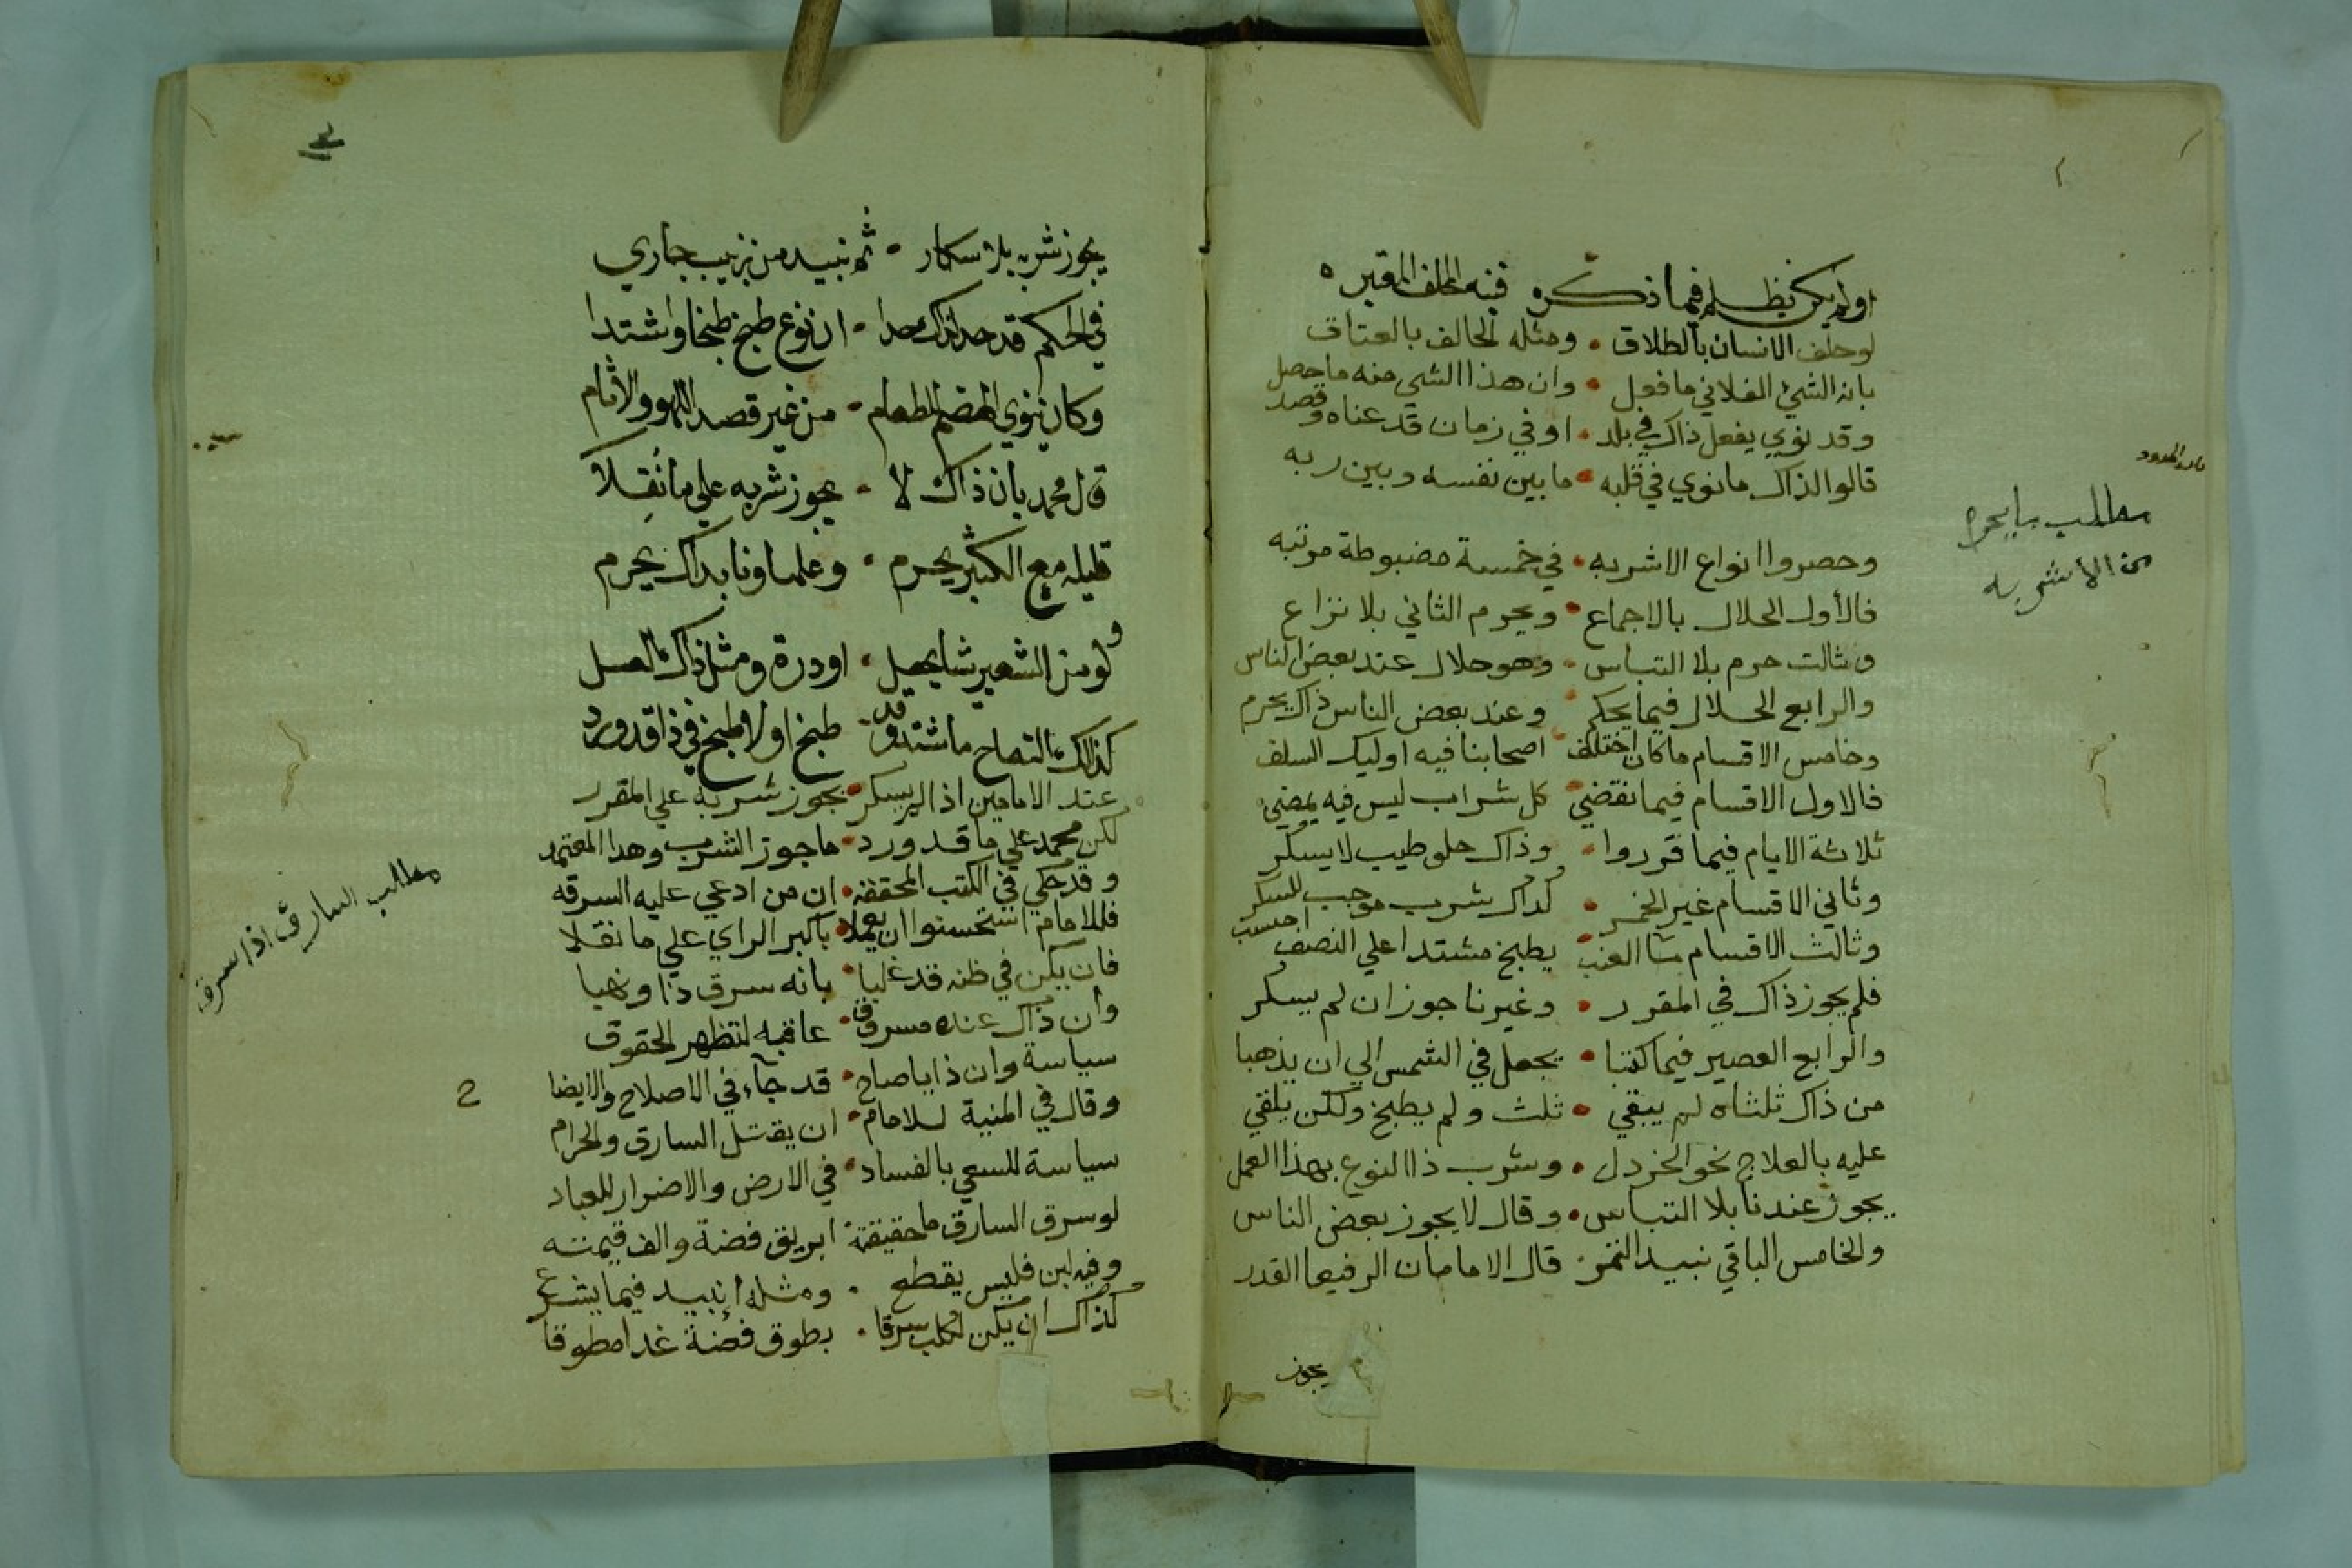 اولم يكن يظلم فيما ذكره فنه الحلف المقبره
لوحلف الانسان بالطلاق • ومثله الحالف بالعتاق
بان الشيء الفلاني ما فعل • وان هذا الشي منه ما حصل
وقد نوي يفعل ذاك في بلد • او في زمان قد عناه وقصد
قالوا لذاك ما نوي في قلبه • ما بين نفسه وبين ربه
وحصروا انواع الاشربه • في خمسة مضبوطة مرتبه
فالأول الحلال بالاجماع • ويحرم الثاني بلا نزاع
وثالث حرم بلا التباس • وهو حلال عند بعض الناس
والرابع الحلال فيما يحكم • وعند بعض الناس ذاك يحرم
وخامس الاقسام ما كان اختلف • اصحابنا فيه اوليك السلف
فالاول الاقسام فيما نقضي • كل شراب ليس فيه يمضي
ثلاثة الايام فيما قرروا • وذاك حلو طيب لا يسكر
وثاني الاقسام غير الخمر • كذاك شرب موجب للسكر
وثالث الاقسام مآ العنب • يطبخ مشتدا علي النصف احسب
فلم يجوز ذاك في المقرر • وغيرنا جوز ان لم يسكر
والرابع العصير فيما كتبا • يجعل في الشمس الي ان يذهبا
من ذاك ثلثاه لم يبقي • ثلث ولم يطبخ ولكن يلقي
عليه بالعلاج نحو الخردل • وشرب ذا النوع بهذا العمل
يجوز عندنا بلا التباس • وقال لا يجوز بعض الناس
والخامس الباقي نبيد التمر • قال الامامان الرفيعا القدر
يجوز
مطلب ما يحرم
من الاشربه
يجوز شربه بلا سكار • ثم نبيد من زبيب جاري
في الحكم قد حد لذاك حدا • ان نوع طبخ طبخا واشتدا
وكان ينوي الهضم للطعام • من غير قصد اللهو والاثام
قال محمد بان ذاك لا • يجوز شربه علي ما نقلا
قليله مع الكثير يحرم • وعلماونا بداك يحرم
ولو من الشعير شا يحصل • او درة ومثل ذاك العسل
كذلك التفاح ما اشتد وقد • طبخ او لا طبخ في ذا قد ورد
عند الامامين اذا لم يسكر • يجوز شربه علي المقرر
لكن محمد علي ما قد ورد • ما جوز الشرب وهدا المعتمد
وقد حكي في الكتب المحققه • ان من ادعي عليه السرقه
فللامام استحسنوا ان يعملا • باكبر الراي علي ما نقلا
فان يكن في ظنه قد غلبا • بانه سرق ذا ونهبا
وان ذاك عنده مسروق • عاقبه لتظهر الحقوق
سياسة وان ذا يا صاح • قد جآء في الاصلاح والايضا
ح
وقال في المنية للامام • ان يقتل السارق والحرام
سياسة للسعي بالفساد • في الارض والاضرار للعباد
لو سرق السارق ما حقيقته • ابريق فضة والف قيمته
وفيه لبن فليس يقطع • ومثله نبيد فيما يشرع
كذاك ان يكن لكلب سرقا • بطوق فضة غدا مطوقا
مطلب السارق اذا سرق